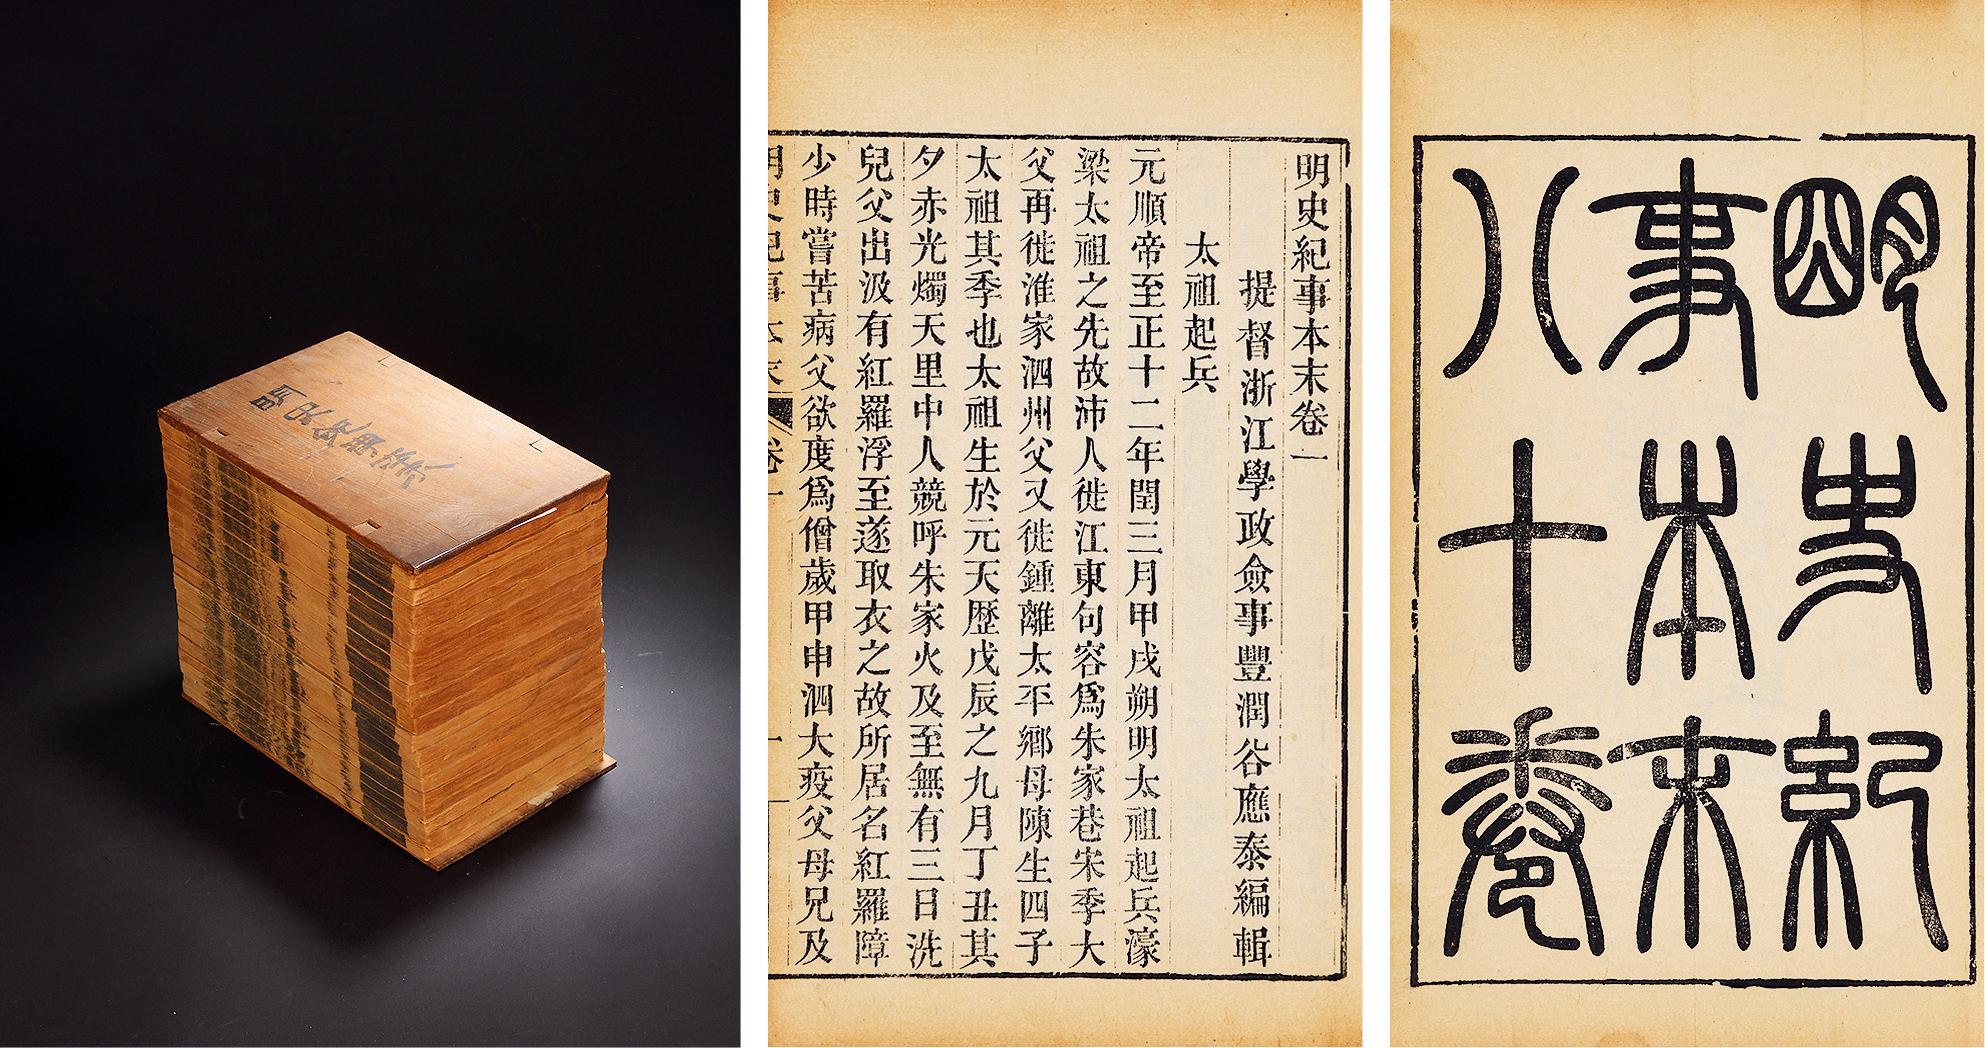 明史
明史紀事本末卷一
提督浙江學政僉事豐潤谷應泰編輯
太祖起兵
元順帝至正十二年閏三月甲戌朔明太祖起兵濠
梁太祖之先故沛人徙江東句容爲朱家巷宋季大
父再徙淮家泗州父又徙鍾離太平鄉母陳生四子
太祖其季也太祖生於元天歷戊辰之九月丁丑其
夕赤光燭天里中人競呼朱家火及至無有三日洗
兒父出汲有紅羅浮至遂取衣之故所居名紅羅障
少時嘗苦病父欲度爲僧歲甲申泗大疫父母兄及
明史紀事本末 卷一 一
明史紀
事本末
八十卷